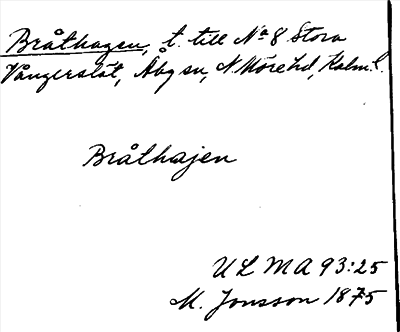 Bråthagen, t. till No 8 Stora
Vångerslät, Åby sn, N. Möre hd, Kalm. l.
Bråthajen
ULMA 93:25
M. Jonsson 1875